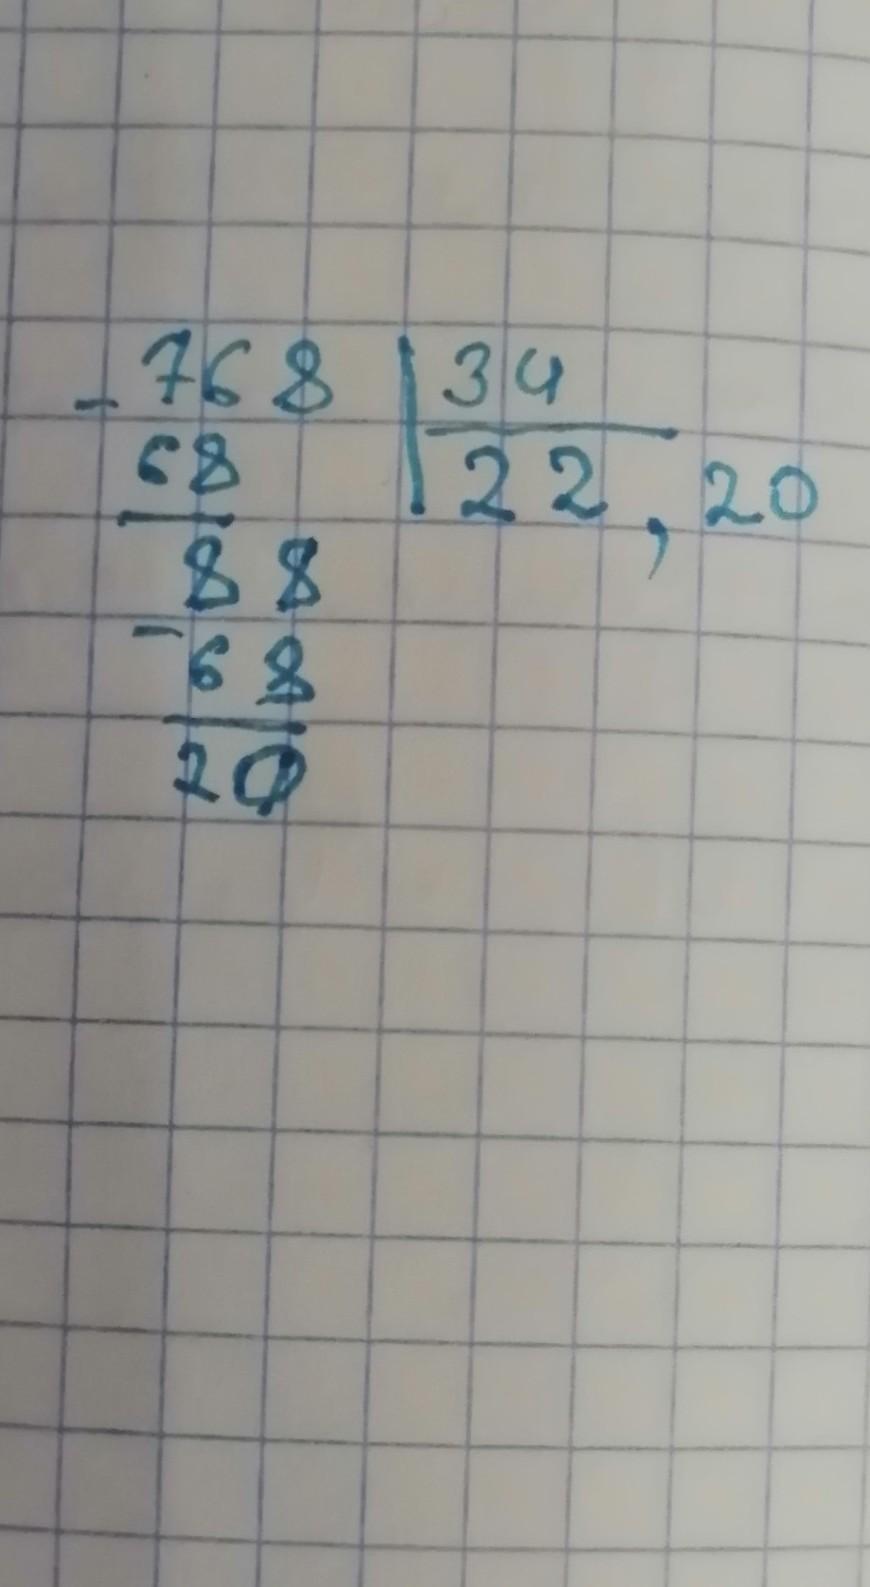 -768 | 34
68 | 22,20
88
-68
20